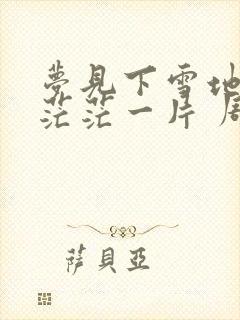 夢見下雪地
茫茫一片
薩貝亞